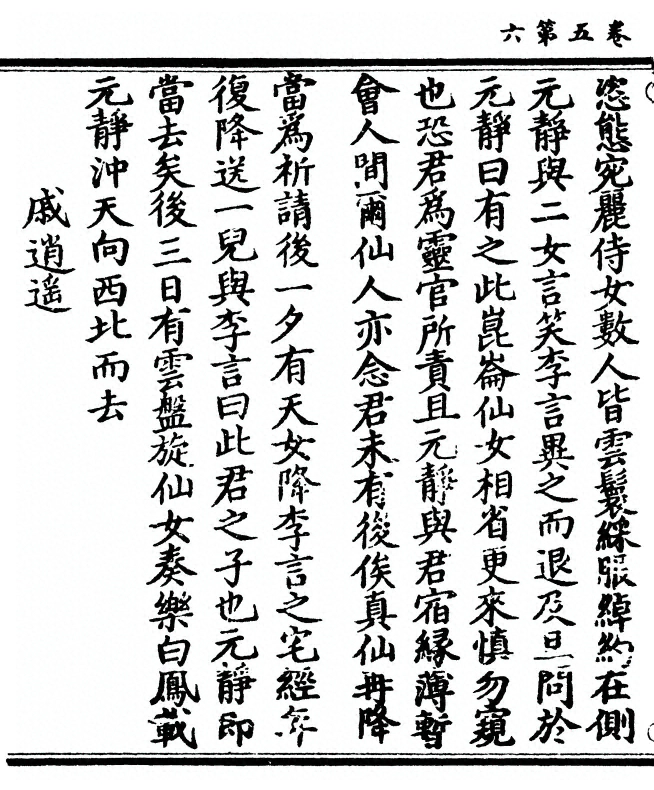 卷五第六
恣態宛麗侍女數人皆雲鬟綵服綽約在側
元靜與二女言笑李言異之而退及旦問於
元靜曰有之此崑崙仙女相省更來慎勿窺
也恐君為靈官所責且元靜與君宿緣薄暫
會人間爾仙人亦念君未有後俟真仙再降
當為祈請後一夕有天女降李言之宅經年
復降送一兒與李言曰此君之子也元靜即
當去矣後三日有雲盤旋仙女奏樂白鳳載
元靜沖天向西北而去
戚逍遥